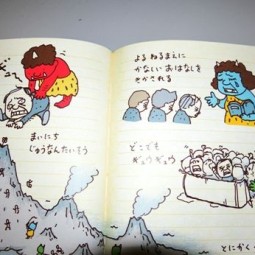 まいにち
じゅうなんたいそう
よる ねるまえに
かなしい おはなしを
きかされる
どこでも
ギュウギュウ
とにかく